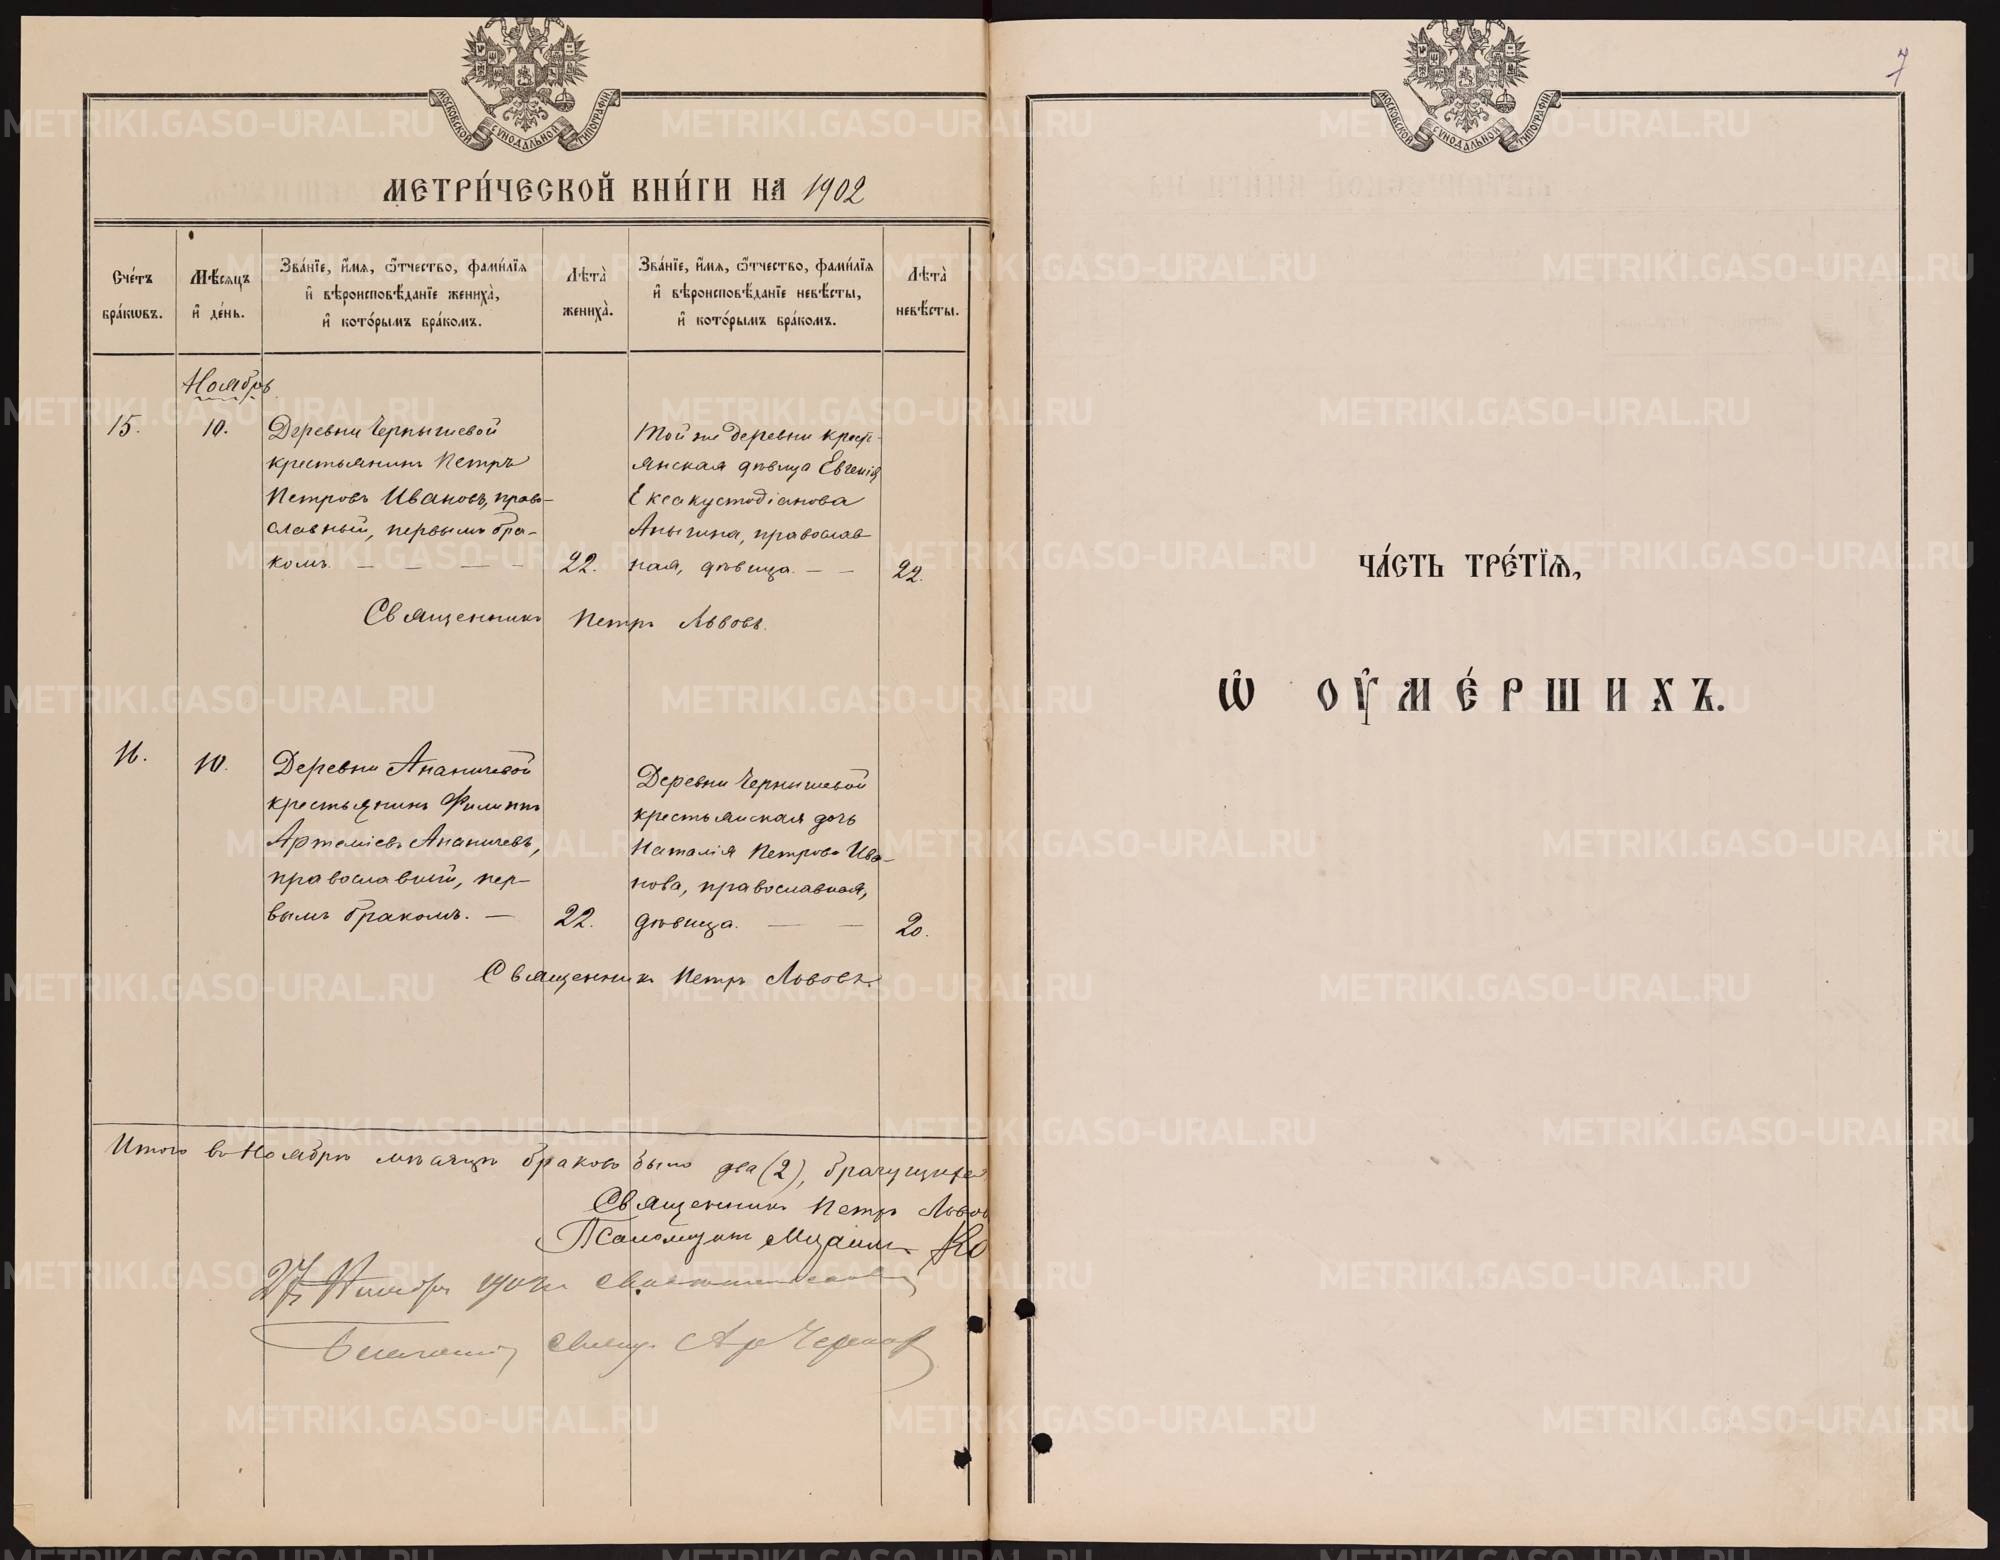 МОСКОВСКОЙ СУНОДАЛЬНОЙ ТИПОГРАФІИ
МЕТРИ́ЧЕСКОЙ КНИ́ГИ НА 1902
Сче́тъ бра́кѡвъ.
Мѣ́сяцъ и҆ де́нь.
Зва́нїе, и҆́мѧ, ѻ҆́тчество, фами́лїѧ
и҆ вѣроисповѣ́данїе жениха̀,
и҆ кото́рымъ бра́комъ.
Лѣта̀ жениха̀.
Зва́нїе, и҆́мѧ, ѻ҆́тчество, фами́лїѧ
и҆ вѣроисповѣ́данїе невѣ́сты,
и҆ кото́рымъ бра́комъ.
Лѣта̀ невѣ́сты.
Ноябрь
15.
10.
Деревни Чернышевой
крестьянинъ Петръ
Петровъ Ивановъ, право-
славный, первымъ бра-
комъ. — — — —
22.
Той же деревни крест-
янская дѣвица Евгенія
Ексакустодіанова
Аныгина, православ
ная, дѣвица. — —
22.
Священникъ Петръ Львовъ.
16.
10.
Деревни Ананичевой
крестьянинъ Филиппъ
Артеміевъ Ананичевъ,
православный, пер-
вымъ бракомъ. —
22.
Деревни Чернышевой
крестьянская дочь
Наталія Петрова Ива-
нова, православная,
дѣвица. — —
20.
Священникъ Петръ Львовъ.
Итого въ Ноябрѣ мѣсяцѣ браковъ было два (2), брачущихся
Священникъ Петръ Львовъ
Псаломщикъ Михаилъ
27 Ноября 1902 г.
Благочинный свящ.
7
МОСКОВСКОЙ СУНОДАЛЬНОЙ ТИПОГРАФІИ
ЧА́СТЬ ТРЕ́ТЇѦ,
Ѡ҆ ОУ҆МЕ́РШИХЪ.
METRIKI.GASO-URAL.RU